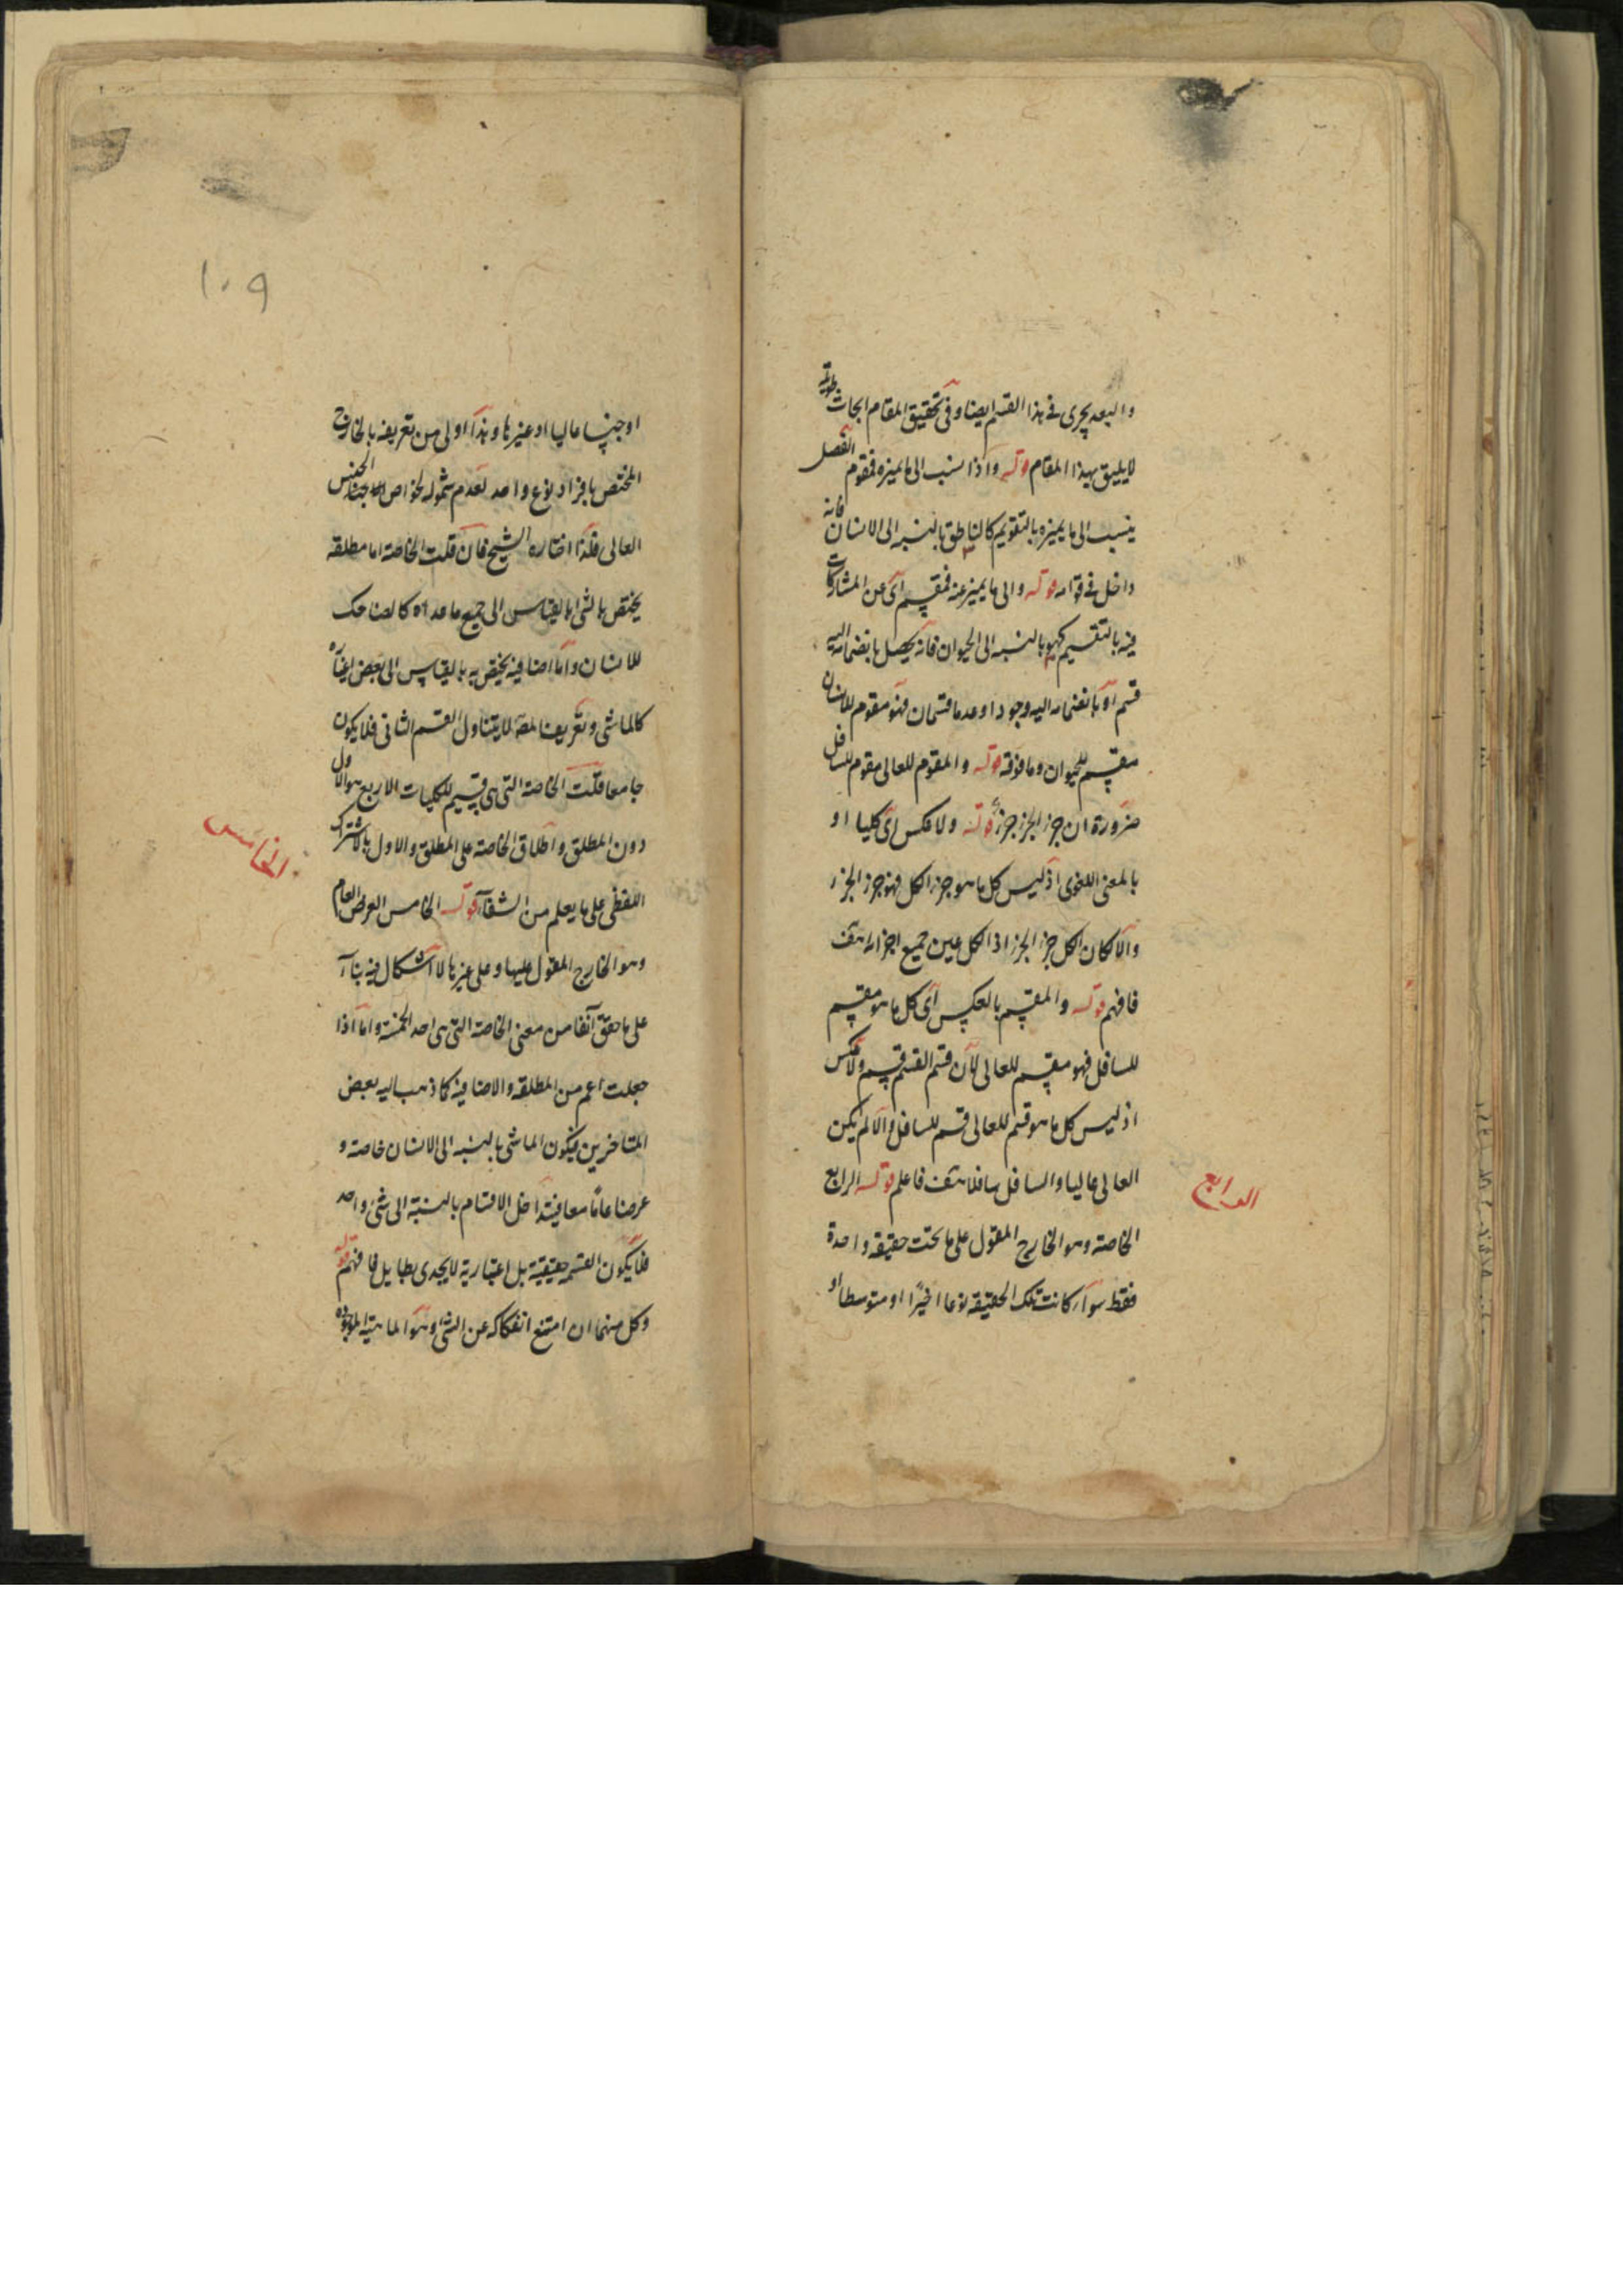 والبعد يجرى فى هذا القسم ايضا وفى تحقيق المقام ابحاث طويلة
لا يليق بهذا المقام قوله واذا نسب الى ما يميزه فمقوم الفصل
ينسب الى ما يميزه بالتقويم كالناطق بالنسبه الى الانسان فانه
داخل فى قوامه قوله والى ما يميز عنه فمقسم اى عن المشاركات
فيه بالتقسيم كهو بالنسبه الى الحيوان فانه يحصل بانضمامه اليه
قسم او بانضمامه اليه وجودا وعدما قسمان فهو مقوم للانسان
مقسم للحيوان وما فوقه قوله والمقوم للعالى مقوم للسافل
ضرورة ان جزء الجزء جزء قوله ولا عكس اى كليا او
بالمعنى اللغوى اذ ليس كل ما هو جزء الكل فهو جزء الجزء
والا لكان الكل جزء الجزء اذ الكل عين جميع اجزائه هف
فافهم قوله والمقسم بالعكس اى كل ما هو مقسم
للسافل فهو مقسم للعالى لان قسم القسم قسم ولا عكس
اذ ليس كل ما هو قسم للعالى قسم للسافل والا لم يكن
العالى عاليا والسافل سافلا هف فاعلم قوله الرابع
الرابع
الخاصه وهو الخارج المقول على ما تحت حقيقه واحدة
فقط سواء كانت تلك الحقيقه نوعا اخيرا او متوسطا او
١٠٩
او جنسا عاليا او غيرها وهذا اولى من تعريفه بالخارج
المختص بافراد نوع واحد لعدم شموله لخواص الجنس
العالى فلذا اختاره الشيخ فان قلت الخاصة اما مطلقه
يختص بالشى بالقياس الى جميع ما عداه كالضاحك
للانسان واما اضافيه يختص به بالقياس الى بعض اغياره
كالماشى وتعريف المصه لا يتناول القسم الثانى فلا يكون
جامعا قلت الخاصة التى هى قسيم للكليات الاربع هو الاول
دون المطلق واطلاق الخاصة على المطلق والاول بالاشتراك
الخامس
اللفظى على ما يعلم من الشفاء قوله الخامس العرض العام
وهو الخارج المقول عليها وعلى غيرها لا اشكال فيه بناء
على ما حقق آنفا من معنى الخاصة التى هى احد الخمسة واما اذا
جعلت اعم من المطلقه والاضافيه كما ذهب اليه بعض
المتاخرين فيكون الماشى بالنسبه الى الانسان خاصة و
عرضا عاما معا فيتداخل الاقسام بالنسبة الى شئ واحد
فلا يكون القسمة حقيقية بل اعتبارية لا يجدى بطايل فافهم قوله
وكل منهما ان امتنع انفكاكه عن الشى وهو الماهيه الموجودة